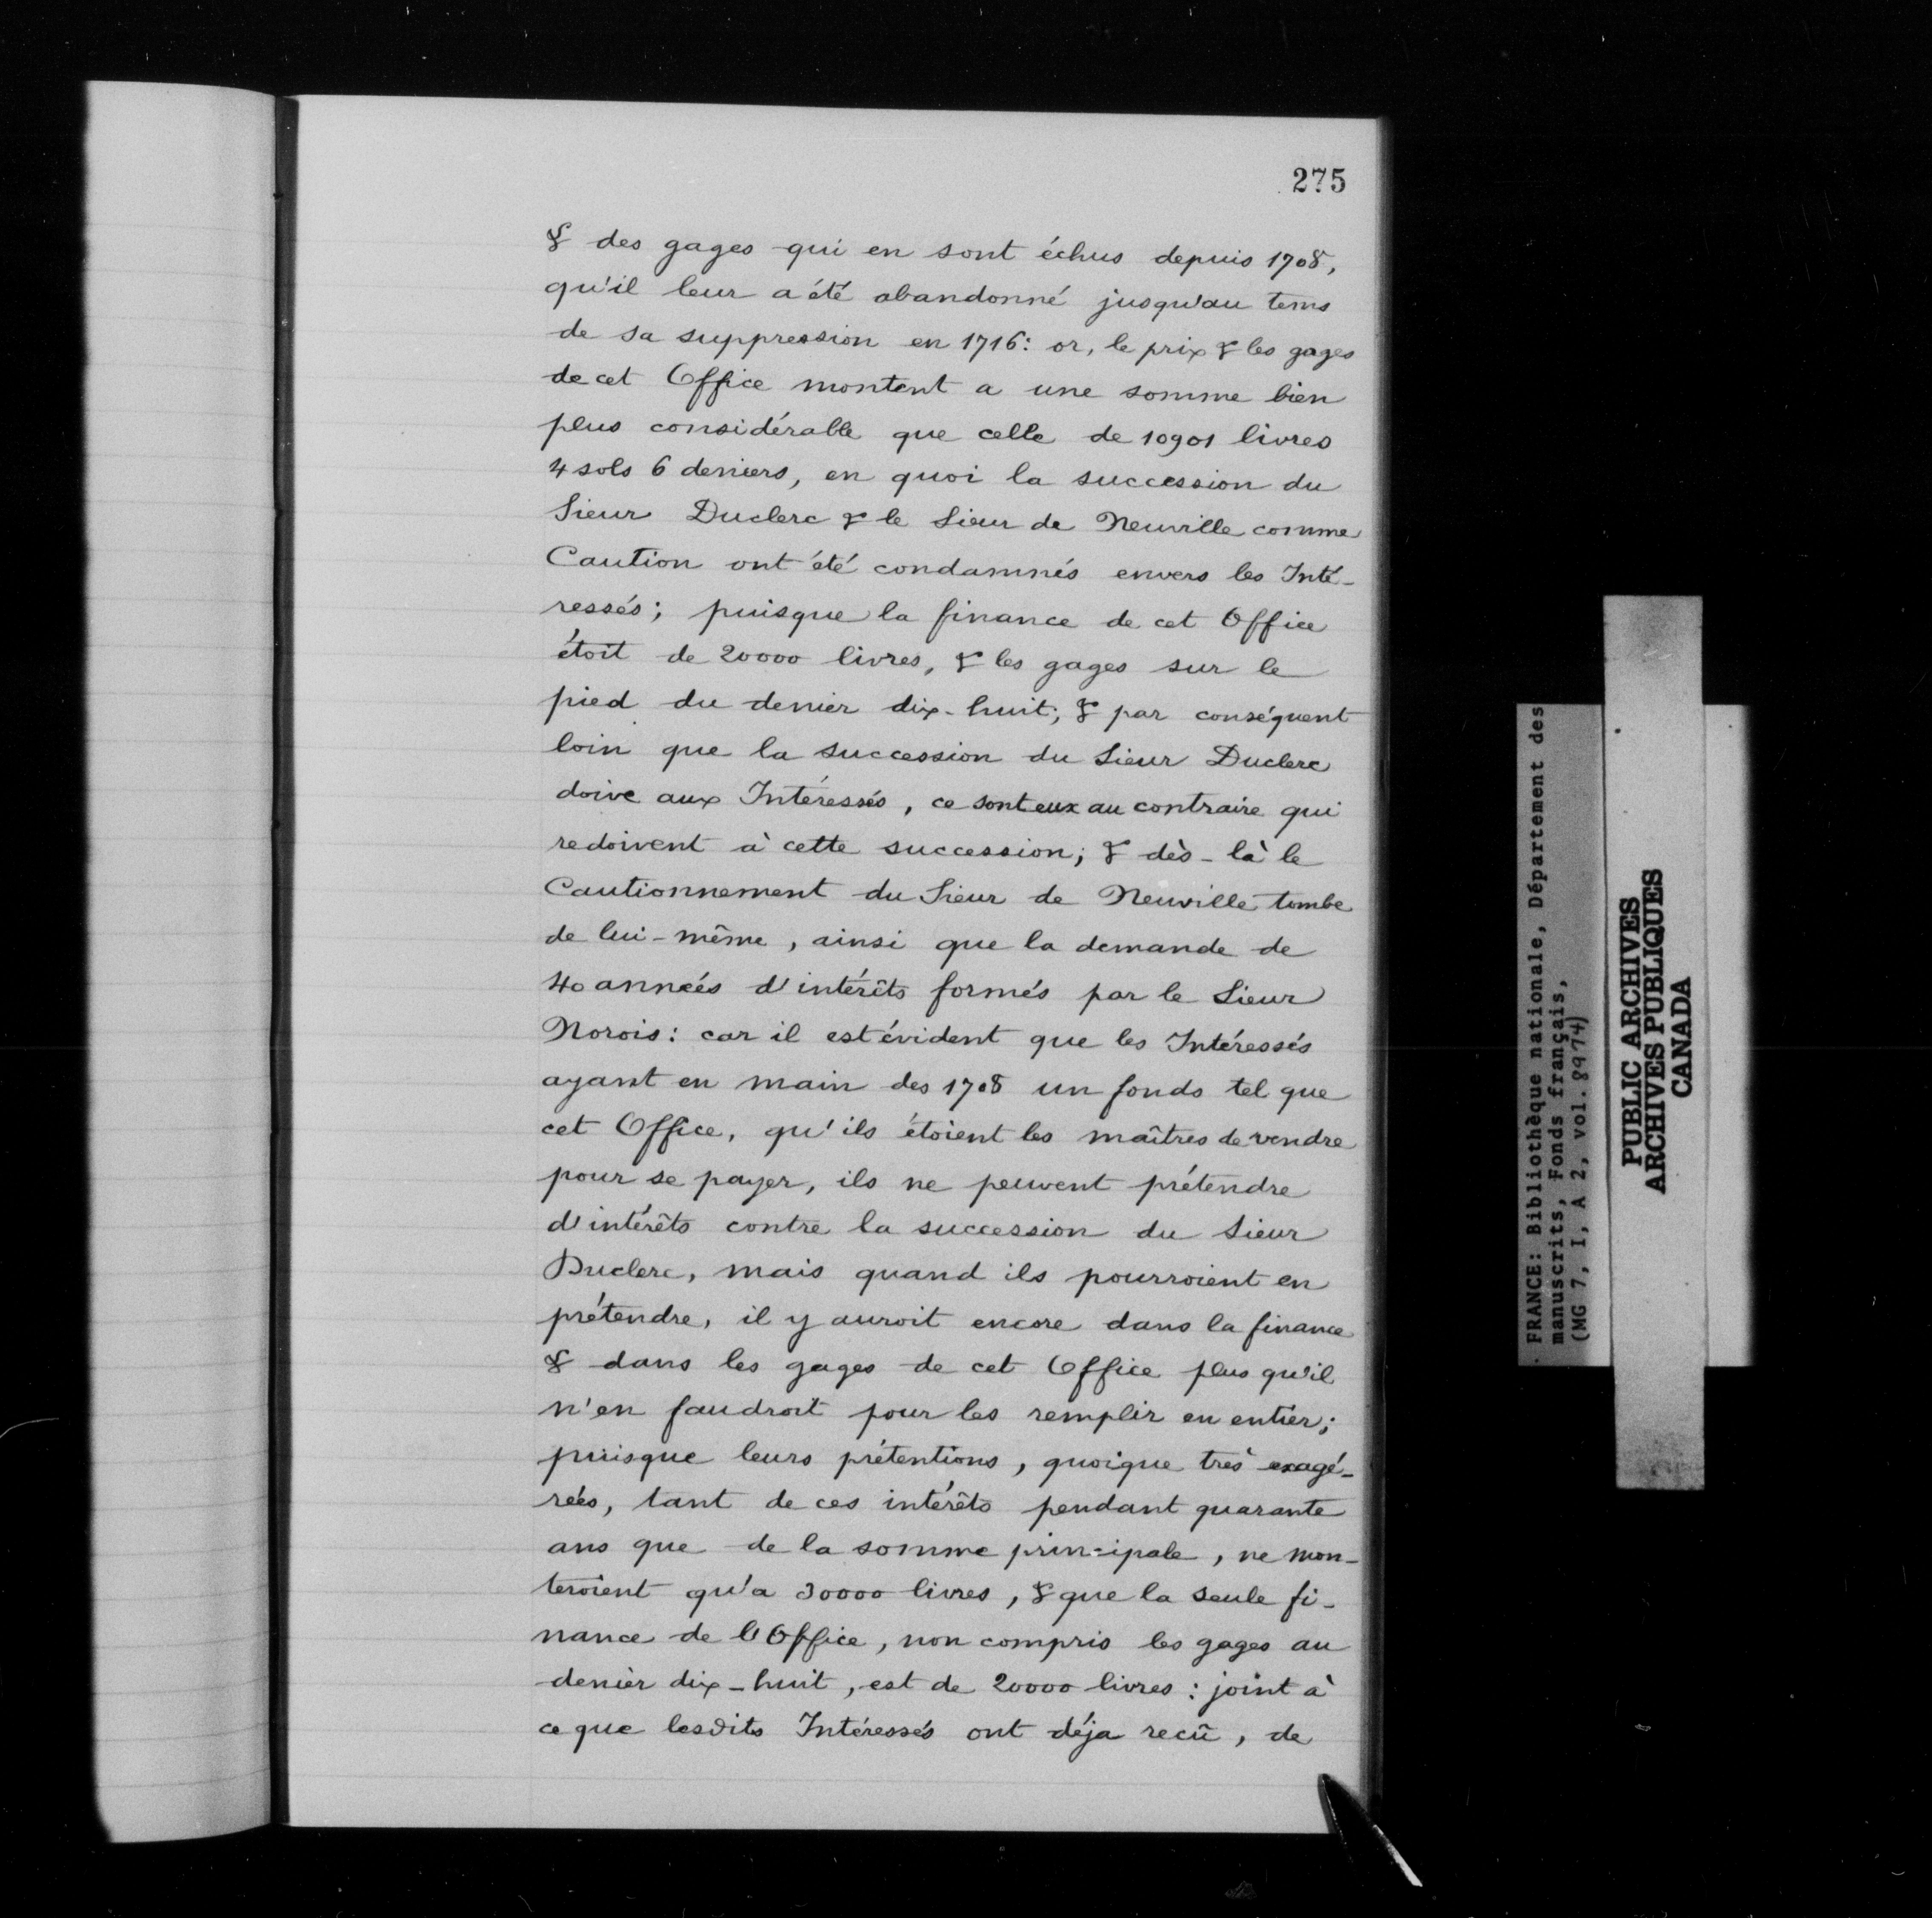 275
& des gages qui en sont échus depuis 1708,
qu'il leur a été abandonné jusqu'au tems
de sa suppression en 1716: or, le prix & les gages
de cet Office montent a une somme bien
plus considérable que celle de 10901 livres
4 sols 6 deniers, en quoi la succession du
Sieur Duclerc & le Sieur de Neuville comme
Caution ont été condamnés envers les Inté-
ressés; puisque la finance de cet Office
étoit de 20000 livres, & les gages sur le
pied du denier dix-huit; & par conséquent
loin que la succession du Sieur Duclerc
doive aux Intéressés, ce sont eux au contraire qui
redoivent à cette succession; & dès-là le
Cautionnement du Sieur de Neuville tombe
de lui-même, ainsi que la demande de
40 années d'intérêts formés par le Sieur
Norois: car il est évident que les Intéressés
ayant en main des 1708 un fonds tel que
cet Office, qu'ils étoient les maîtres de vendre
pour se payer, ils ne peuvent prétendre
d'intérêts contre la succession du Sieur
Duclerc, mais quand ils pourroient en
prétendre, il y auroit encore dans la finance
& dans les gages de cet Office plus qu'il
n'en faudroit pour les remplir en entier;
puisque leurs prétentions, quoique très exagé-
rées, tant de ces intérêts pendant quarante
ans que de la somme principale, ne mon-
teroient qu'a 30000 livres, & que la seule fi-
nance de l'Office, non compris les gages au
denier dix-huit, est de 20000 livres: joint à
ce que lesdits Intéressés ont déja recû, de
FRANCE: Bibliothèque nationale, Département des
manuscrits, Fonds français,
(MG 7, I, A 2, vol. 8974)
PUBLIC ARCHIVES
ARCHIVES PUBLIQUES
CANADA